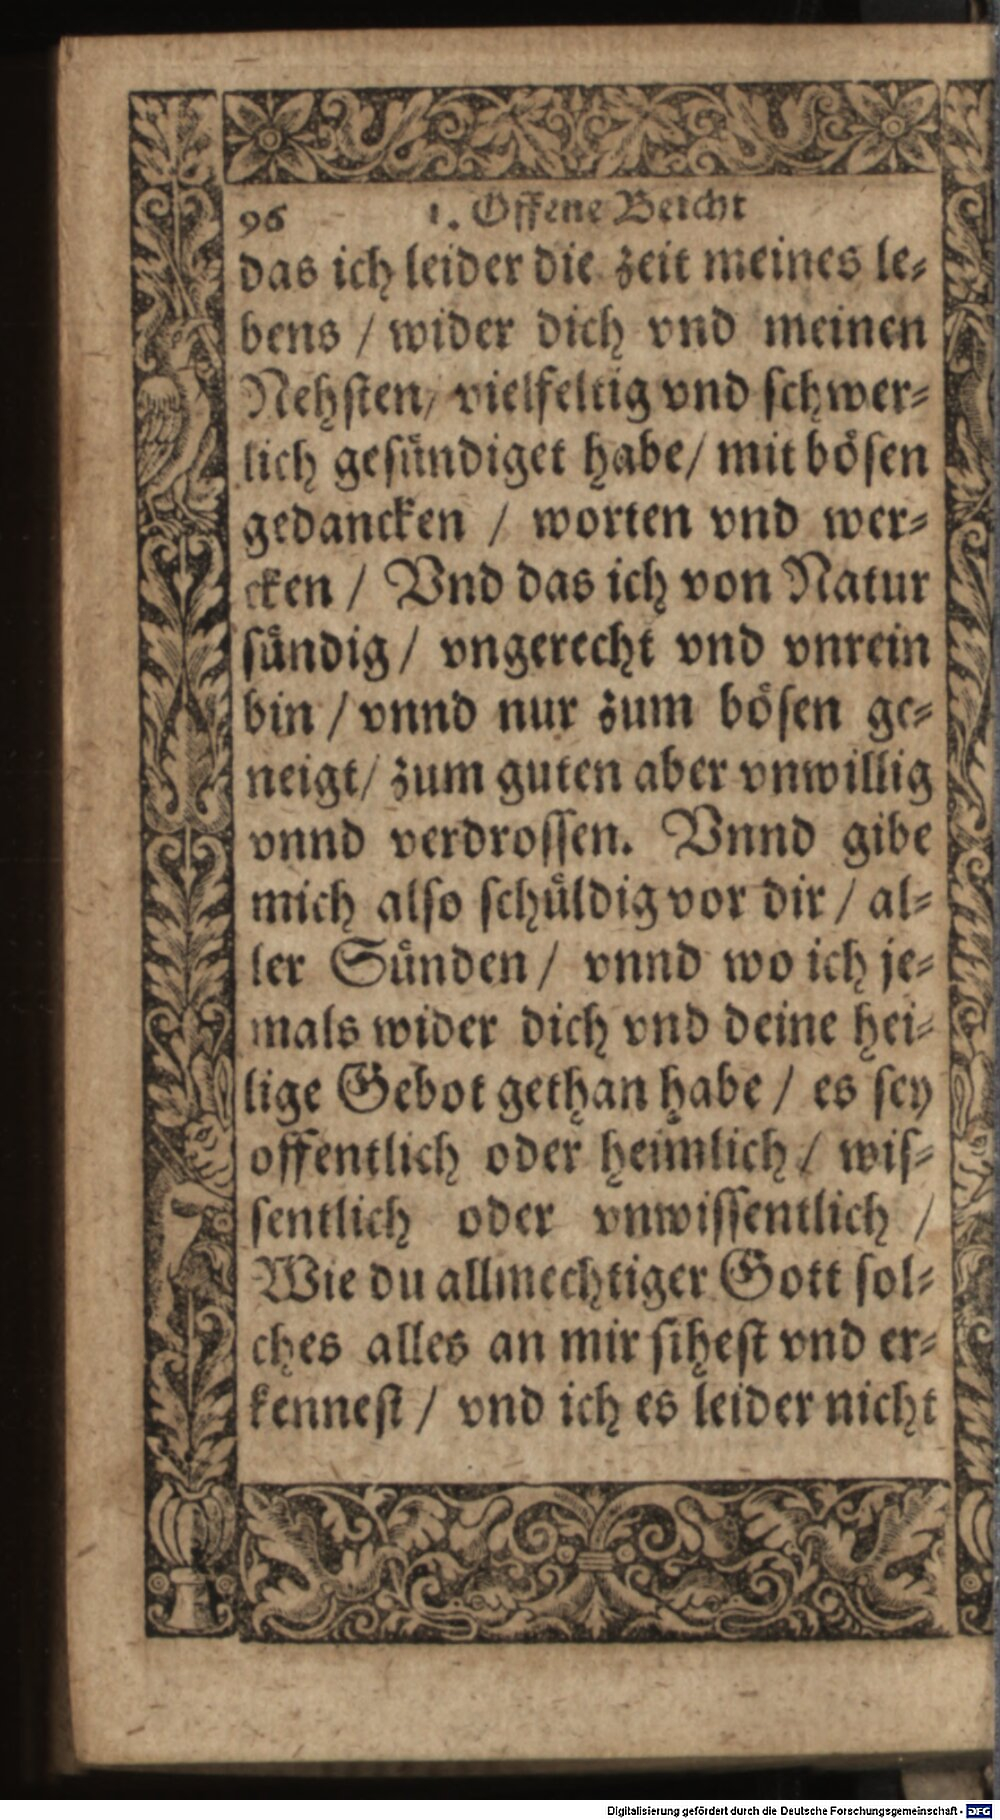 96 1. Offene Beicht
das ich leider die zeit meines le⸗
bens / wider dich vnd meinen
Nehſten, vielfeltig vnd ſchwer⸗
lich geſuͤndiget habe / mit boͤſen
gedancken / worten vnd wer⸗
cken / Vnd das ich von Natur
ſuͤndig / vngerecht vnd vnrein
bin / vnnd nur zum boͤſen ge⸗
neigt / zum guten aber vnwillig
vnnd verdroſſen. Vnnd gibe
mich alſo ſchuͤldig vor dir / al⸗
ler Suͤnden / vnnd wo ich je⸗
mals wider dich vnd deine hei⸗
lige Gebot gethan habe / es ſey
offentlich oder heimlich / wiſ⸗
ſentlich oder vnwiſſentlich /
Wie du allmechtiger Gott ſol⸗
ches alles an mir ſiheſt vnd er⸗
kenneſt / vnd ich es leider nicht
Digitalisierung gefördert durch die Deutsche Forschungsgemeinschaft - DFG